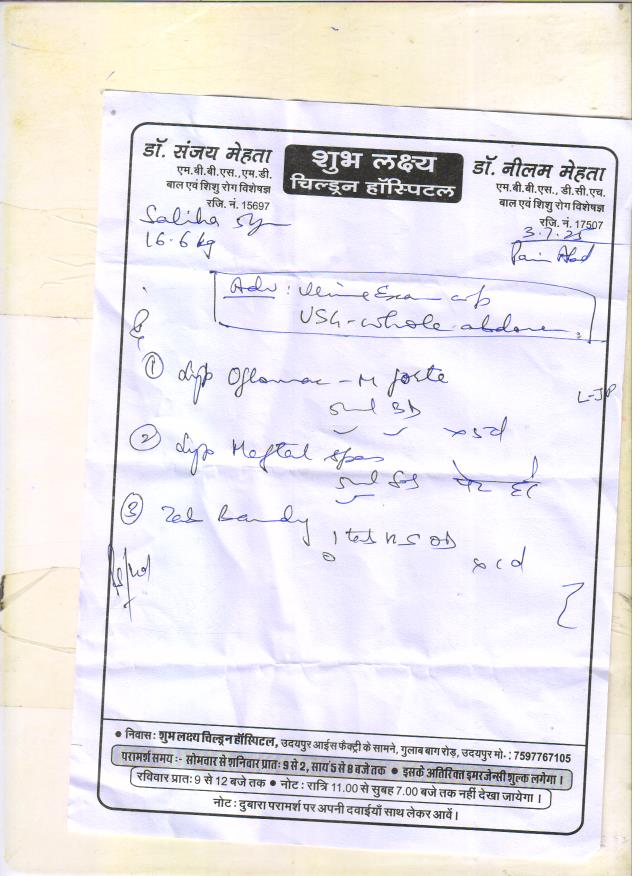 शुभ लक्ष्य
चिल्ड्रन हॉस्पिटल
डॉ. संजय मेहता
एम.बी.बी.एस., एम.डी.
बाल एवं शिशु रोग विशेषज्ञ
रजि. नं. 15697
डॉ. नीलम मेहता
एम.बी.बी.एस., डी.सी.एच.
बाल एवं शिशु रोग विशेषज्ञ
रजि. नं. 17507
Saliha 5y
16.6 kg
3.7.25
Pain Abd
Adv: Urine Exam c/p
USG - whole abdomen
① Syp Oflomac - M forte
5ml BD
x 5d
② Syp Meftal spas
5ml SOS पेट दर्द
③ Tab Bandy
1 tab HS OD
• निवास : शुभ लक्ष्य चिल्ड्रन हॉस्पिटल, उदयपुर आईस फैक्ट्री के सामने, गुलाब बाग रोड़, उदयपुर मो.: 7597767105
परामर्श समय :- सोमवार से शनिवार प्रातः 9 से 2, सायं 5 से 8 बजे तक • इसके अतिरिक्त इमरजेन्सी शुल्क लगेगा।
रविवार प्रातः 9 से 12 बजे तक • नोट : रात्रि 11.00 से सुबह 7.00 बजे तक नहीं देखा जायेगा।
नोट : दुबारा परामर्श पर अपनी दवाईयाँ साथ लेकर आवें।